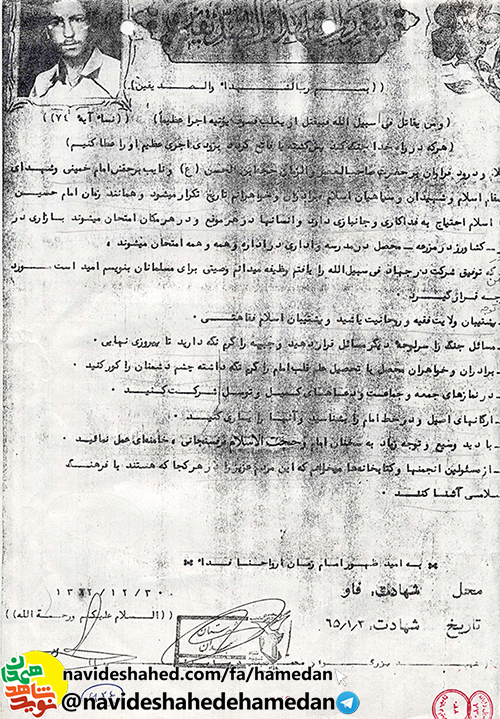 ((بسم رب الشهداء والصدیقین))
(ومن یقاتل فی سبیل الله فیقتل او یغلب فسوف نوتیه اجرا عظیما) ((نساء آیه ۷۴))
(هرکه در راه خدا جنگ کند پس کشته یا فاتح گردد بزودی اجری عظیم او را عطا کنیم)
و درود فراوان بر حضرت صاحب العصر والزمان حجة ابن الحسن (ع) و نایب برحقش امام خمینی وشهدای
اسلام و شهیدان و سپاهیان اسلام برادران و خواهرانم تاریخ تکرار میشود و همانند زمان امام حسین
اسلام احتیاج به فداکاری و جانبازی دارند وانسانها در هر موقع و در هر مکان امتحان میشوند بازاری در
کشاورز در مزرعه - محصل در مدرسه و اداری در اداره و همه و همه امتحان میشوند
که توفیق شرکت در جهاد فی سبیل الله را یافتم وظیفه میدانم وصیتی برای مسلمانان بنویسم امید است مورد
قرار گیرد .
پشتیبان ولایت فقیه و روحانیت باشید و پشتیبان اسلام فقاهتی .
مسائل جنگ را سرلوحه دیگر مسائل قرار دهید و جبهه را گرم نگه دارید تا پیروزی نهایی .
برادران و خواهران محصل با تحصیل علم قلب امام را گرم نگه داشته چشم دشمنان را کور کنید .
در نمازهای جمعه و جماعت و دعاهای کمیل و توسل شرکت کنید .
ارگانهای اصیل و در خط امام را بشناسید و آنها را یاری کنید .
با دید وسیع و توجه زیاد به سخنان امام و حجت الاسلام رفسنجانی ، خامنه‌ای عمل نمائید .
از مسئولین انجمنها و کتابخانه‌ها میخواهم که این مردم عزیز را در هر کجا که هستند با فرهنگ
اسلامی آشنا کنند .
به امید ظهور امام زمان ارواحنا فداه
محل شهادت: فاو
تاریخ شهادت: ۶۵/۱/۳
((السلام علیکم ورحمة الله))
نوید شاهد همدان
navideshahed.com/fa/hamedan
@navideshahedehamedan